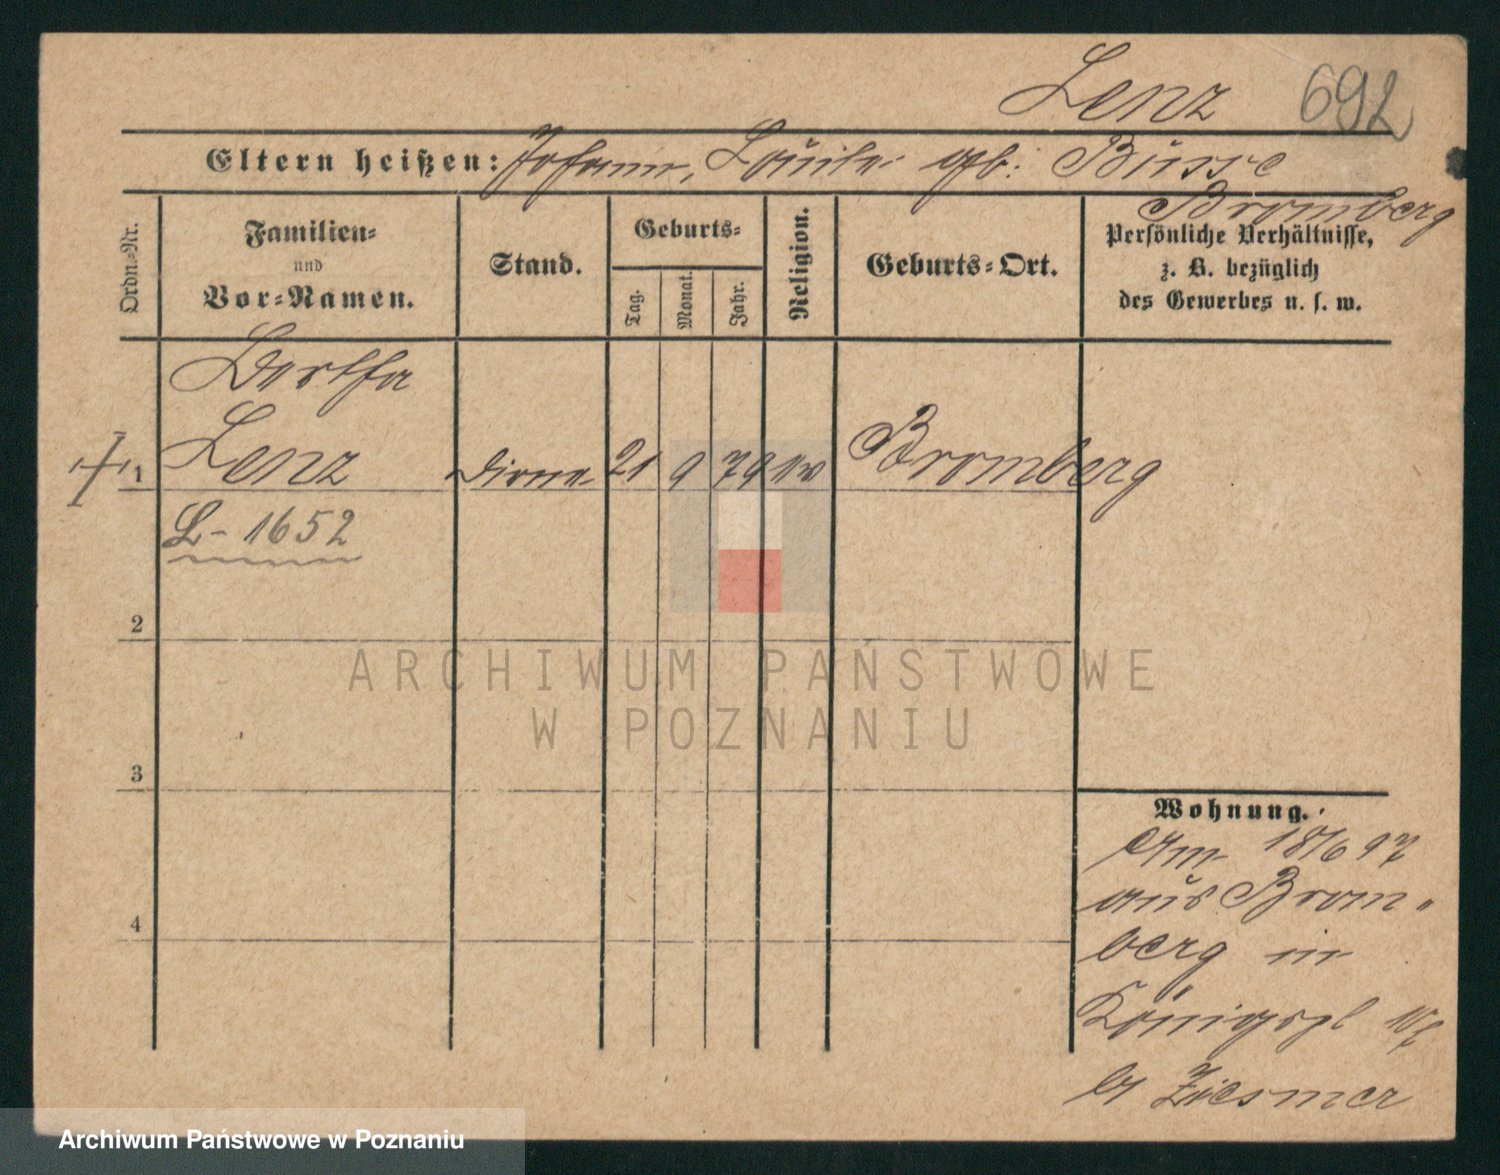 Lenz 692
Eltern heißen: Johann, Louise gb: Busse
Bromberg
Ordn.-Nr.
Familien-
und
Vor-Namen.
Stand.
Geburts-
Tag.
Monat.
Jahr.
Religion.
Geburts-Ort.
Persönliche Verhältnisse,
z. B. bezüglich
des Gewerbes u. s. w.
Bertha
1 Lenz Dirne 21 9 79 ev Bromberg
L- 1652
2
3
4
ARCHIWUM PAŃSTWOWE
W POZNANIU
Wohnung.
Am 18/6 97
aus Brom-
berg in
Königspl
b/ Ziesmer
Archiwum Państwowe w Poznaniu